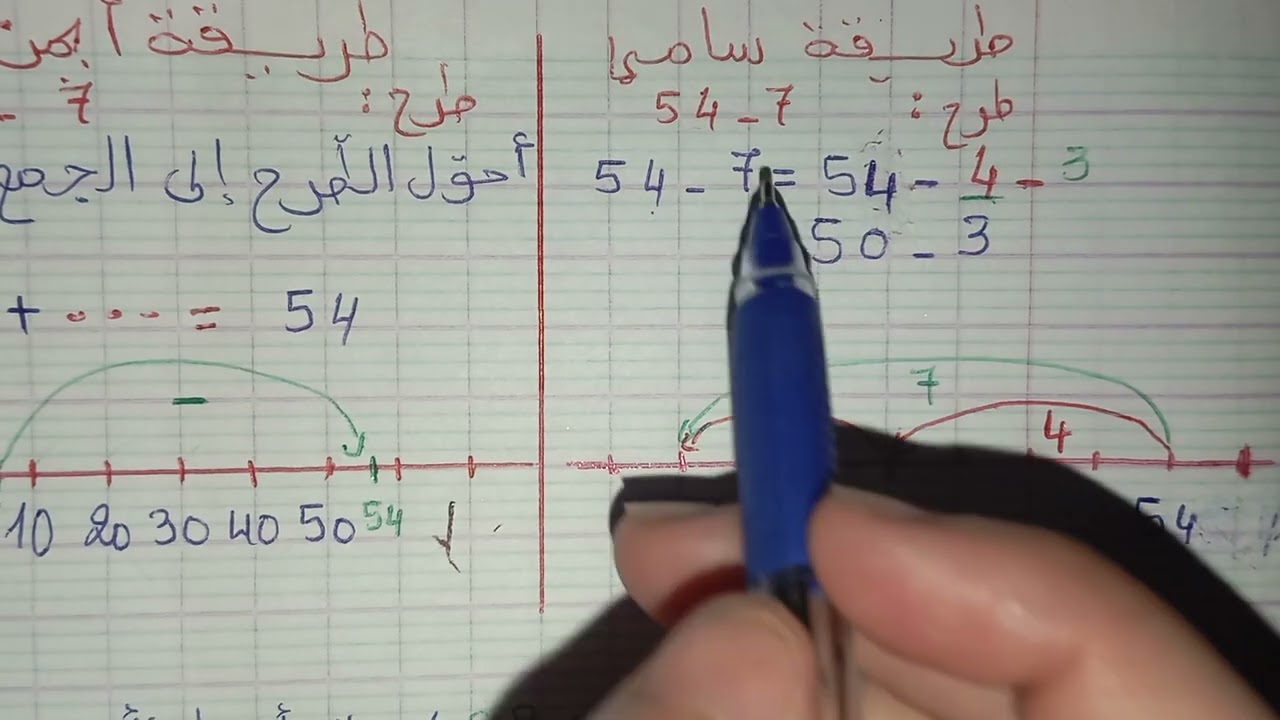 طريقة سامي
طرح: 54 - 7
54 - 7 = 54 - 4 - 3
50 - 3
7
4
54
طريقة أيمن
طرح: - 7
أحوّل الطرح إلى الجمع
+ ... = 54
-
10 20 30 40 50 54